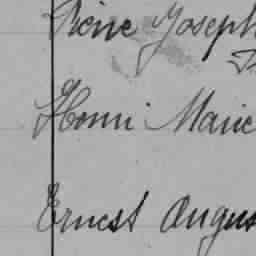 Irène Joseph
Henri Marie
Ernest Augus